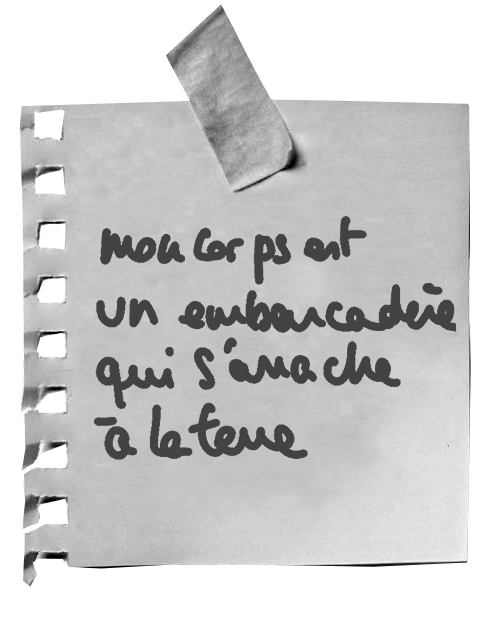 mon corps est
un embarcadère
qui s'arrache
à la terre